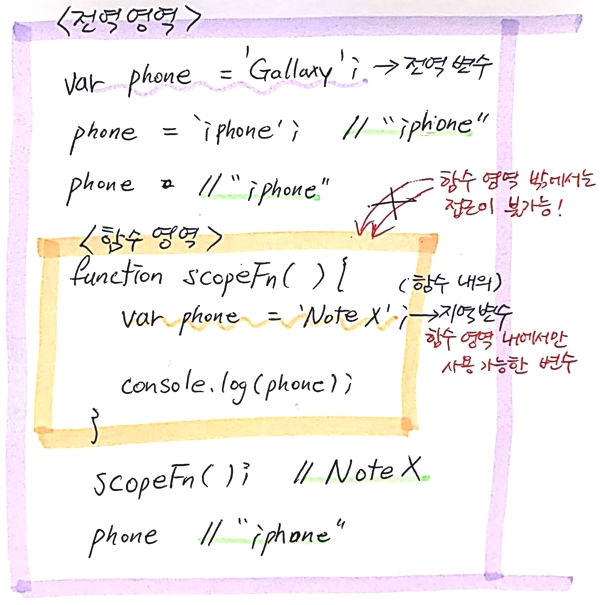 <전역 영역>
var phone = 'Gallaxy'; → 전역 변수
phone = 'iphone'; // "iphone"
phone // "iphone"
함수 영역 밖에서는
접근이 불가능!
<함수 영역>
function scopeFn( ) {
(함수 내의)
var phone = 'Note X'; → 지역변수
함수 영역 내에서만
사용 가능한 변수
console.log(phone);
}
scopeFn( ); // Note X
phone // "iphone"